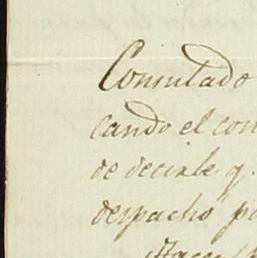 Consulado
cando el con
de decirle q.
despacho po